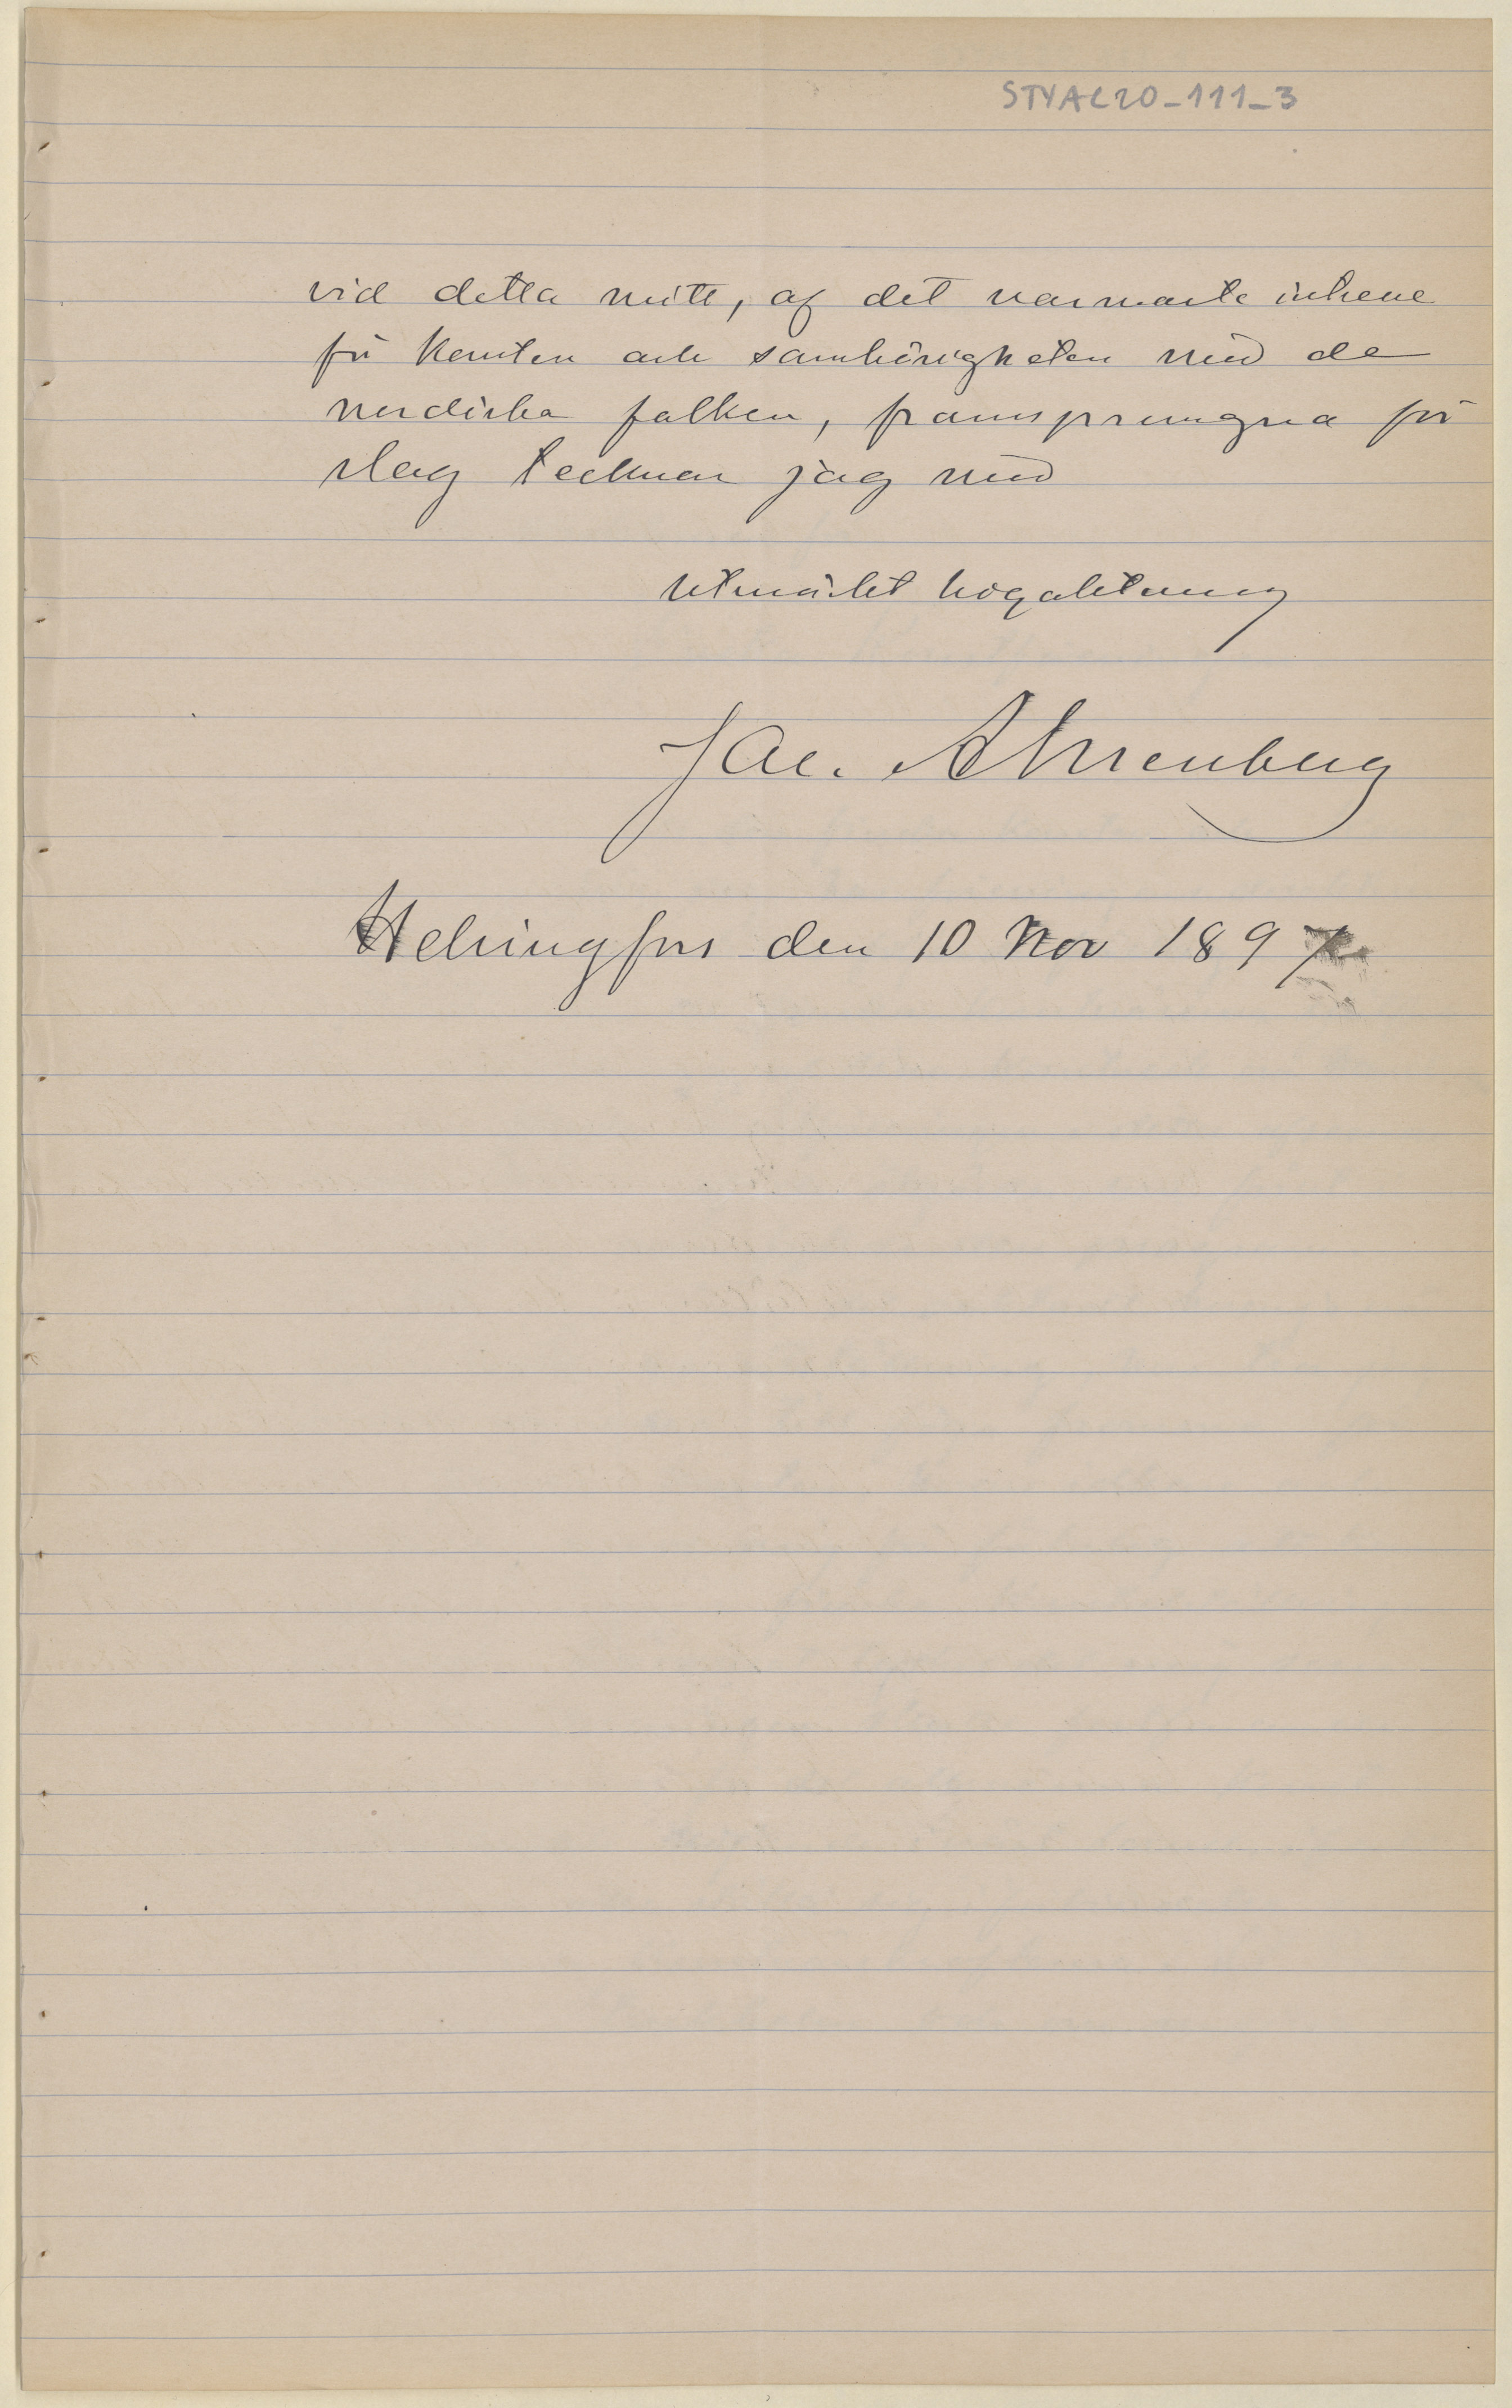 STYAL20_111_3
vid detta mitt, af det varmaste intresse
för konsten och samhörigheten med de
nordiska folken, framsprungna för
slag tecknar jag med
utmärkt högaktning
Jac. Ahrenberg
Helsingfors den 10 Nov 1897